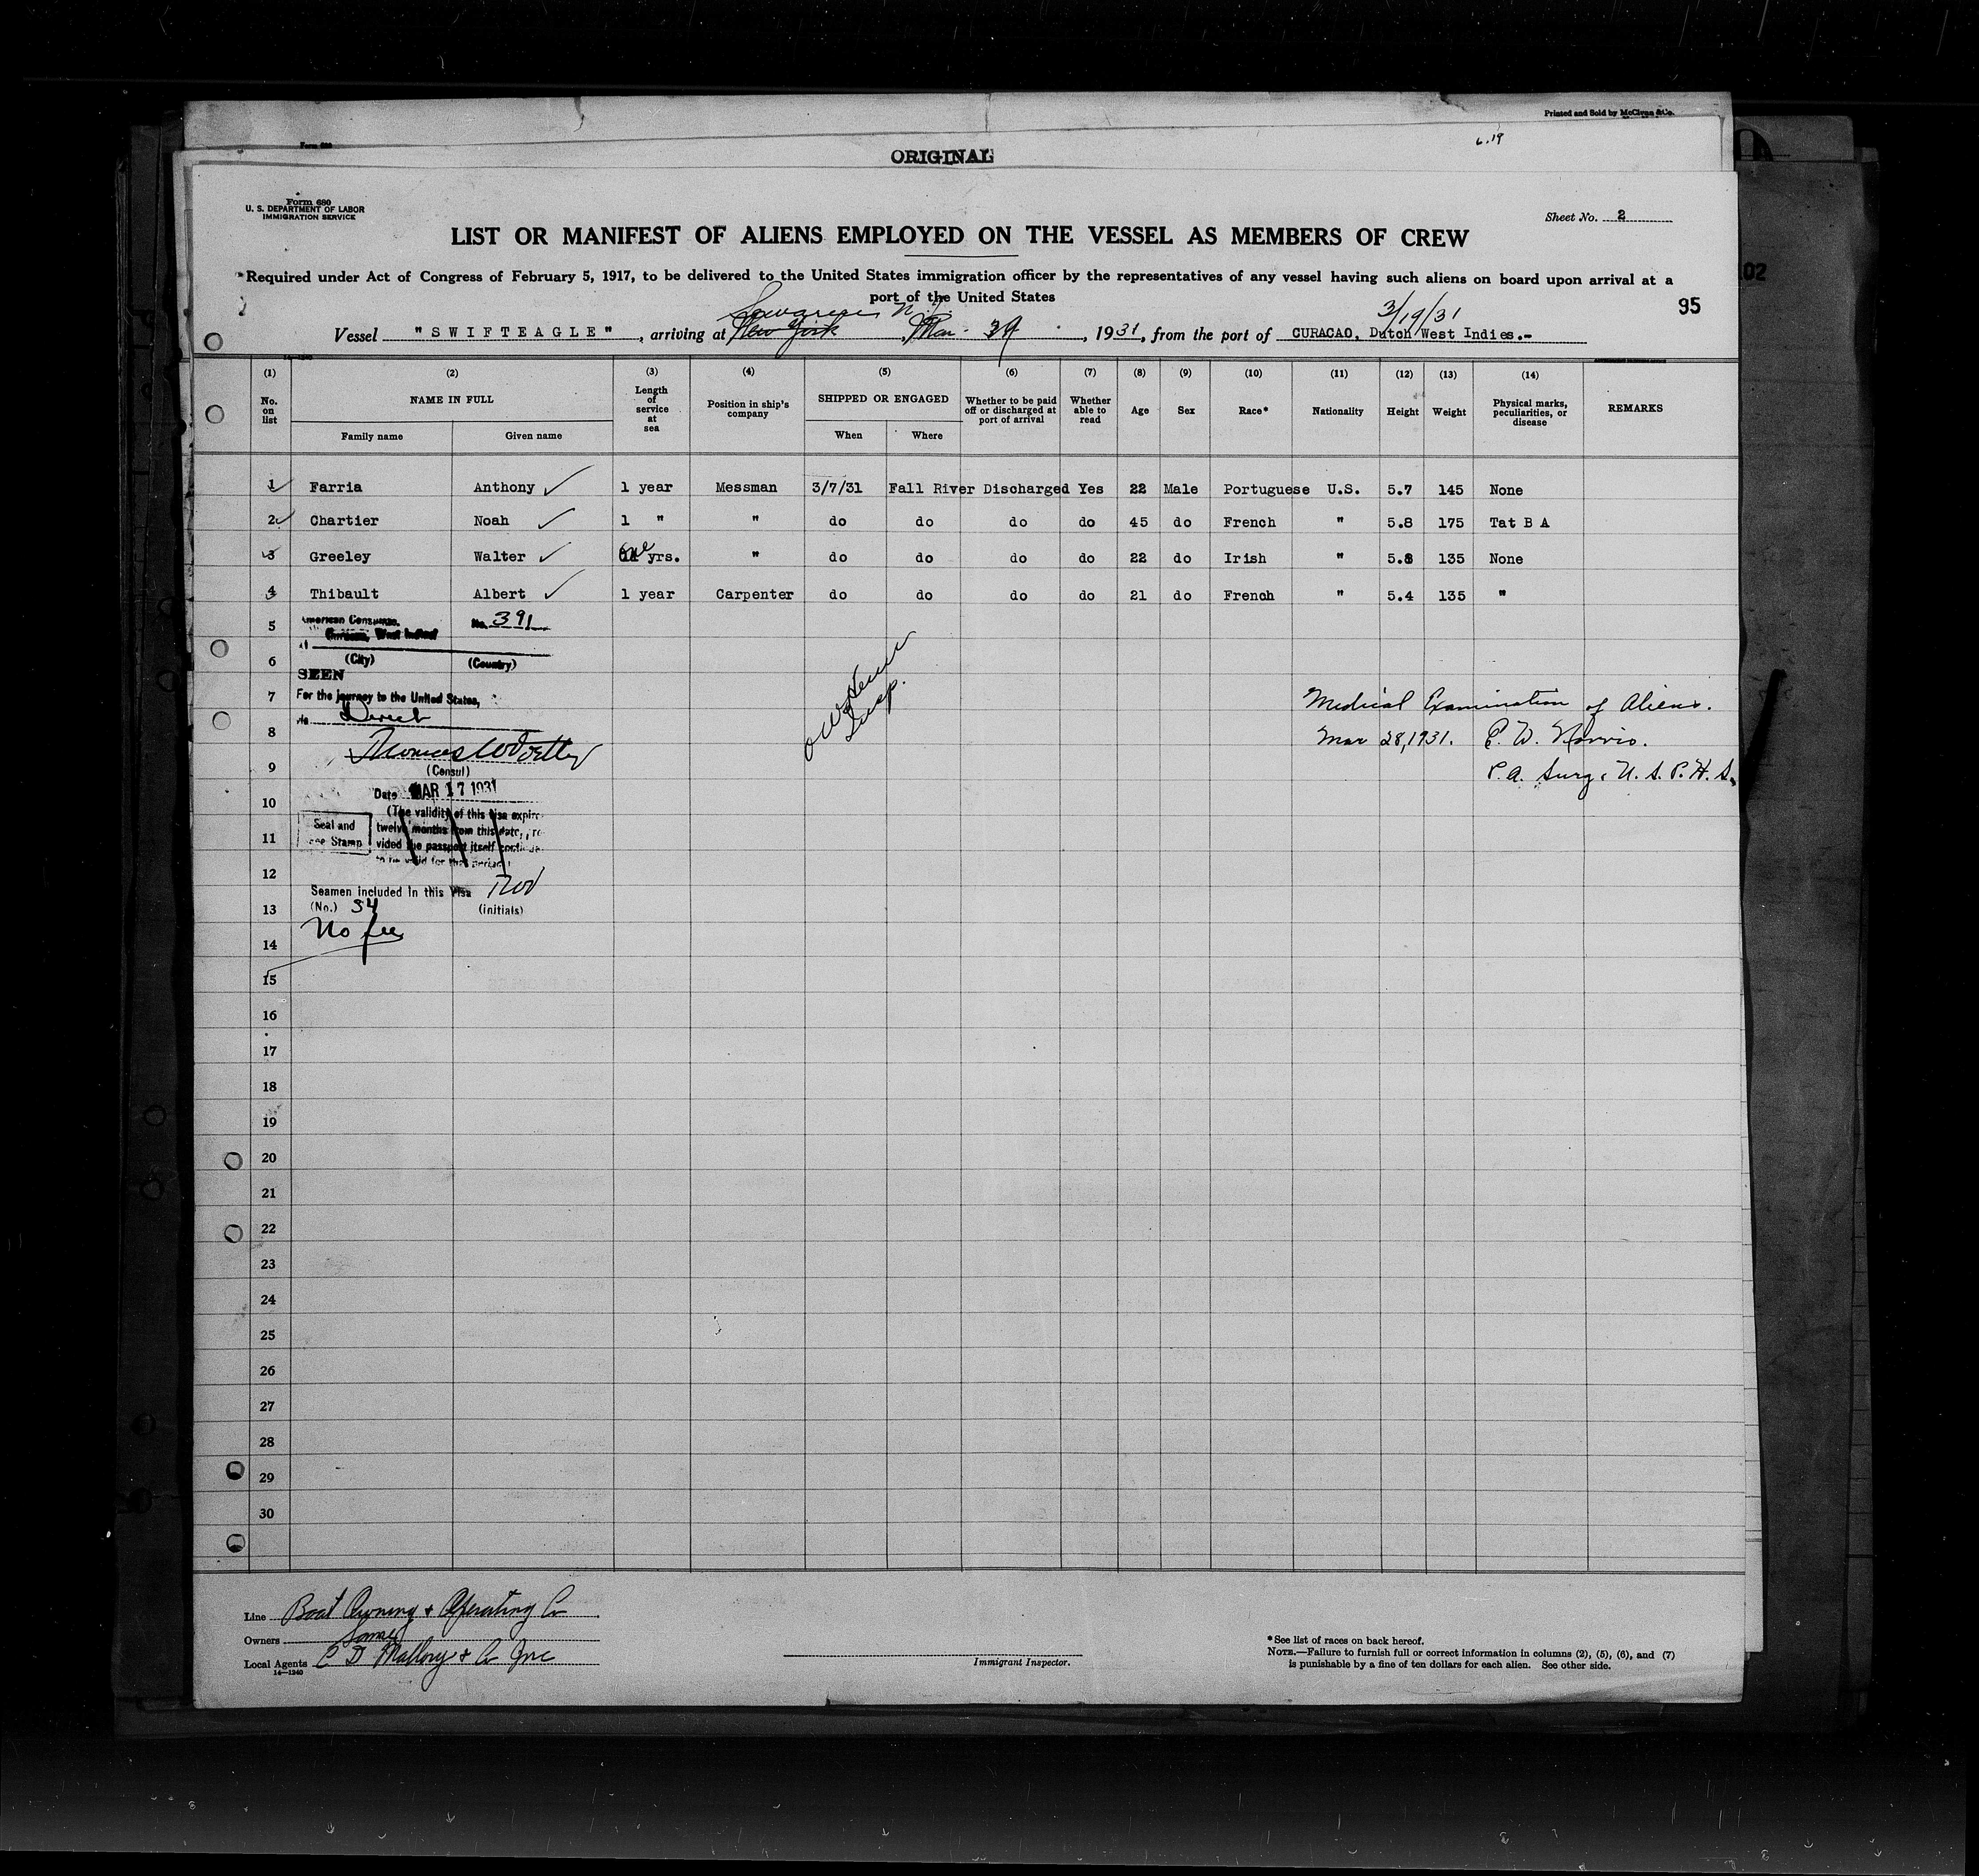 Printed and Sold by McClvan & Co.
Form 680
6.19
ORIGINAL
Form 680
U. S. DEPARTMENT OF LABOR
IMMIGRATION SERVICE
Sheet No. 2
LIST OR MANIFEST OF ALIENS EMPLOYED ON THE VESSEL AS MEMBERS OF CREW
Required under Act of Congress of February 5, 1917, to be delivered to the United States immigration officer by the representatives of any vessel having such aliens on board upon arrival at a
port of the United States
02
95
N.J.
3/19/31
Vessel "SWIFTEAGLE", arriving at New York, Mar. 1931, from the port of CURACAO, Dutch West Indies.-
14-1240
(1) (2) (3) (4) (5) (6) (7) (8) (9) (10) (11) (12) (13) (14)
No. on list NAME IN FULL Length of service at sea Position in ship's company SHIPPED OR ENGAGED Whether to be paid off or discharged at port of arrival Whether able to read Age Sex Race* Nationality Height Weight Physical marks, peculiarities, or disease REMARKS
Family name Given name When Where
1 Farria Anthony 1 year Messman 3/7/31 Fall River Discharged Yes 22 Male Portuguese U.S. 5.7 145 None
2 Chartier Noah 1 " " do do do do 45 do French " 5.8 175 Tat B A
3 Greeley Walter One yrs. " do do do do 22 do Irish " 5.8 135 None
4 Thibault Albert 1 year Carpenter do do do do 21 do French " 5.4 135 "
5 American Consulate, No. 391
Curacao, West Indies
6 (City) (Country)
SEEN
7 For the journey to the United States,
via Direct
8
9 (Consul)
10 Date MAR 17 1931
(The validity of this visa expires
11 Seal and Fee Stamp twelve months from this date, provided the passport itself continues
to be valid for that period.)
12
Seamen included in this Visa
13 (No.) 34 (initials)
14 No fee
15
Insp.
Medical Examination of Aliens.
Mar 28, 1931. E. W. Norris.
P.A. Surg. U.S.P.H.S.
16
17
18
19
20
21
22
23
24
25
26
27
28
29
30
Line Boat Owning & Operating Co
Owners Same
Local Agents C D Mallory & Co Inc
14-1240
Immigrant Inspector.
*See list of races on back hereof.
NOTE.—Failure to furnish full or correct information in columns (2), (5), (6), and (7)
is punishable by a fine of ten dollars for each alien. See other side.